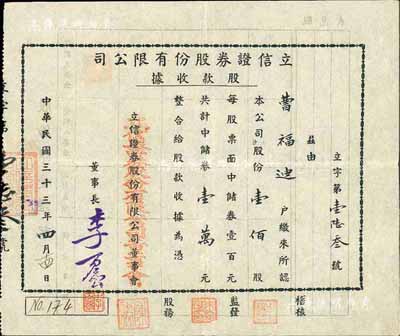 立信證券股份有限公司
股款收據
立字第壹陸叁號
茲由
曹福迪戶繳來所認
本公司股份壹佰股
每股票面中儲券壹百元
共計中儲券壹萬元
整合給股款收據為憑
立信證券股份有限公司董事會
董事長
中華民國三十三年四月 日
稽核
監督
股務
No. 174